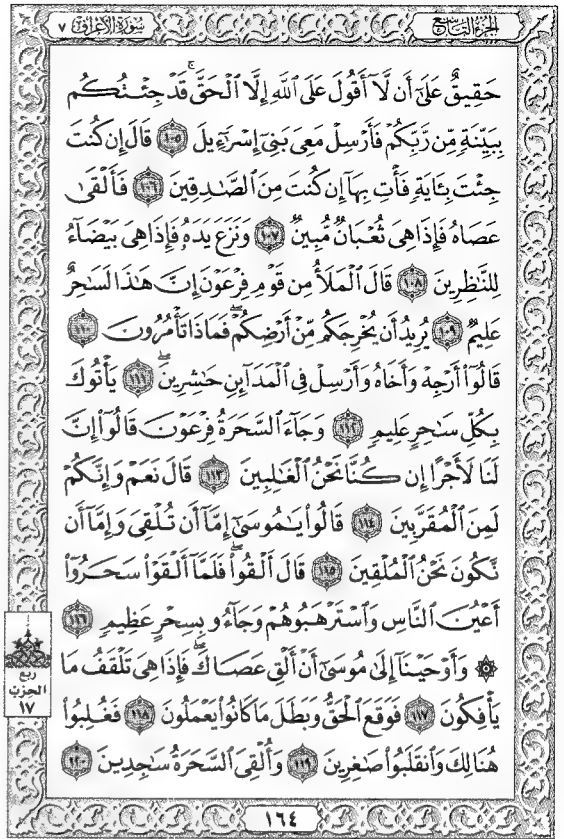 الجزء التاسع
سورة الأعراف ٧
حَقِيقٌ عَلَىٰٓ أَن لَّآ أَقُولَ عَلَى ٱللَّهِ إِلَّا ٱلْحَقَّ ۚ قَدْ جِئْتُكُم
بِبَيِّنَةٍ مِّن رَّبِّكُمْ فَأَرْسِلْ مَعِىَ بَنِىٓ إِسْرَٰٓءِيلَ ١٠٥ قَالَ إِن كُنتَ
جِئْتَ بِـَٔايَةٍ فَأْتِ بِهَآ إِن كُنتَ مِنَ ٱلصَّٰدِقِينَ ١٠٦ فَأَلْقَىٰ
عَصَاهُ فَإِذَا هِىَ ثُعْبَانٌ مُّبِينٌ ١٠٧ وَنَزَعَ يَدَهُۥ فَإِذَا هِىَ بَيْضَآءُ
لِلنَّٰظِرِينَ ١٠٨ قَالَ ٱلْمَلَأُ مِن قَوْمِ فِرْعَوْنَ إِنَّ هَٰذَا لَسَٰحِرٌ
عَلِيمٌ ١٠٩ يُرِيدُ أَن يُخْرِجَكُم مِّنْ أَرْضِكُمْ ۖ فَمَاذَا تَأْمُرُونَ ١١٠
قَالُوٓا۟ أَرْجِهْ وَأَخَاهُ وَأَرْسِلْ فِى ٱلْمَدَآئِنِ حَٰشِرِينَ ۖ ١١١ يَأْتُوكَ
بِكُلِّ سَٰحِرٍ عَلِيمٍ ١١٢ وَجَآءَ ٱلسَّحَرَةُ فِرْعَوْنَ قَالُوٓا۟ إِنَّ
لَنَا لَأَجْرًا إِن كُنَّا نَحْنُ ٱلْغَٰلِبِينَ ١١٣ قَالَ نَعَمْ وَإِنَّكُمْ
لَمِنَ ٱلْمُقَرَّبِينَ ١١٤ قَالُوا۟ يَٰمُوسَىٰٓ إِمَّآ أَن تُلْقِىَ وَإِمَّآ أَن
نَّكُونَ نَحْنُ ٱلْمُلْقِينَ ١١٥ قَالَ أَلْقُوا۟ ۖ فَلَمَّآ أَلْقَوْا۟ سَحَرُوٓا۟
أَعْيُنَ ٱلنَّاسِ وَٱسْتَرْهَبُوهُمْ وَجَآءُو بِسِحْرٍ عَظِيمٍ ١١٦
۞ وَأَوْحَيْنَآ إِلَىٰ مُوسَىٰٓ أَنْ أَلْقِ عَصَاكَ ۖ فَإِذَا هِىَ تَلْقَفُ مَا
يَأْفِكُونَ ١١٧ فَوَقَعَ ٱلْحَقُّ وَبَطَلَ مَا كَانُوا۟ يَعْمَلُونَ ١١٨ فَغُلِبُوا۟
هُنَالِكَ وَٱنقَلَبُوا۟ صَٰغِرِينَ ١١٩ وَأُلْقِىَ ٱلسَّحَرَةُ سَٰجِدِينَ ١٢٠
ربع
الحزب
١٧
١٦٤